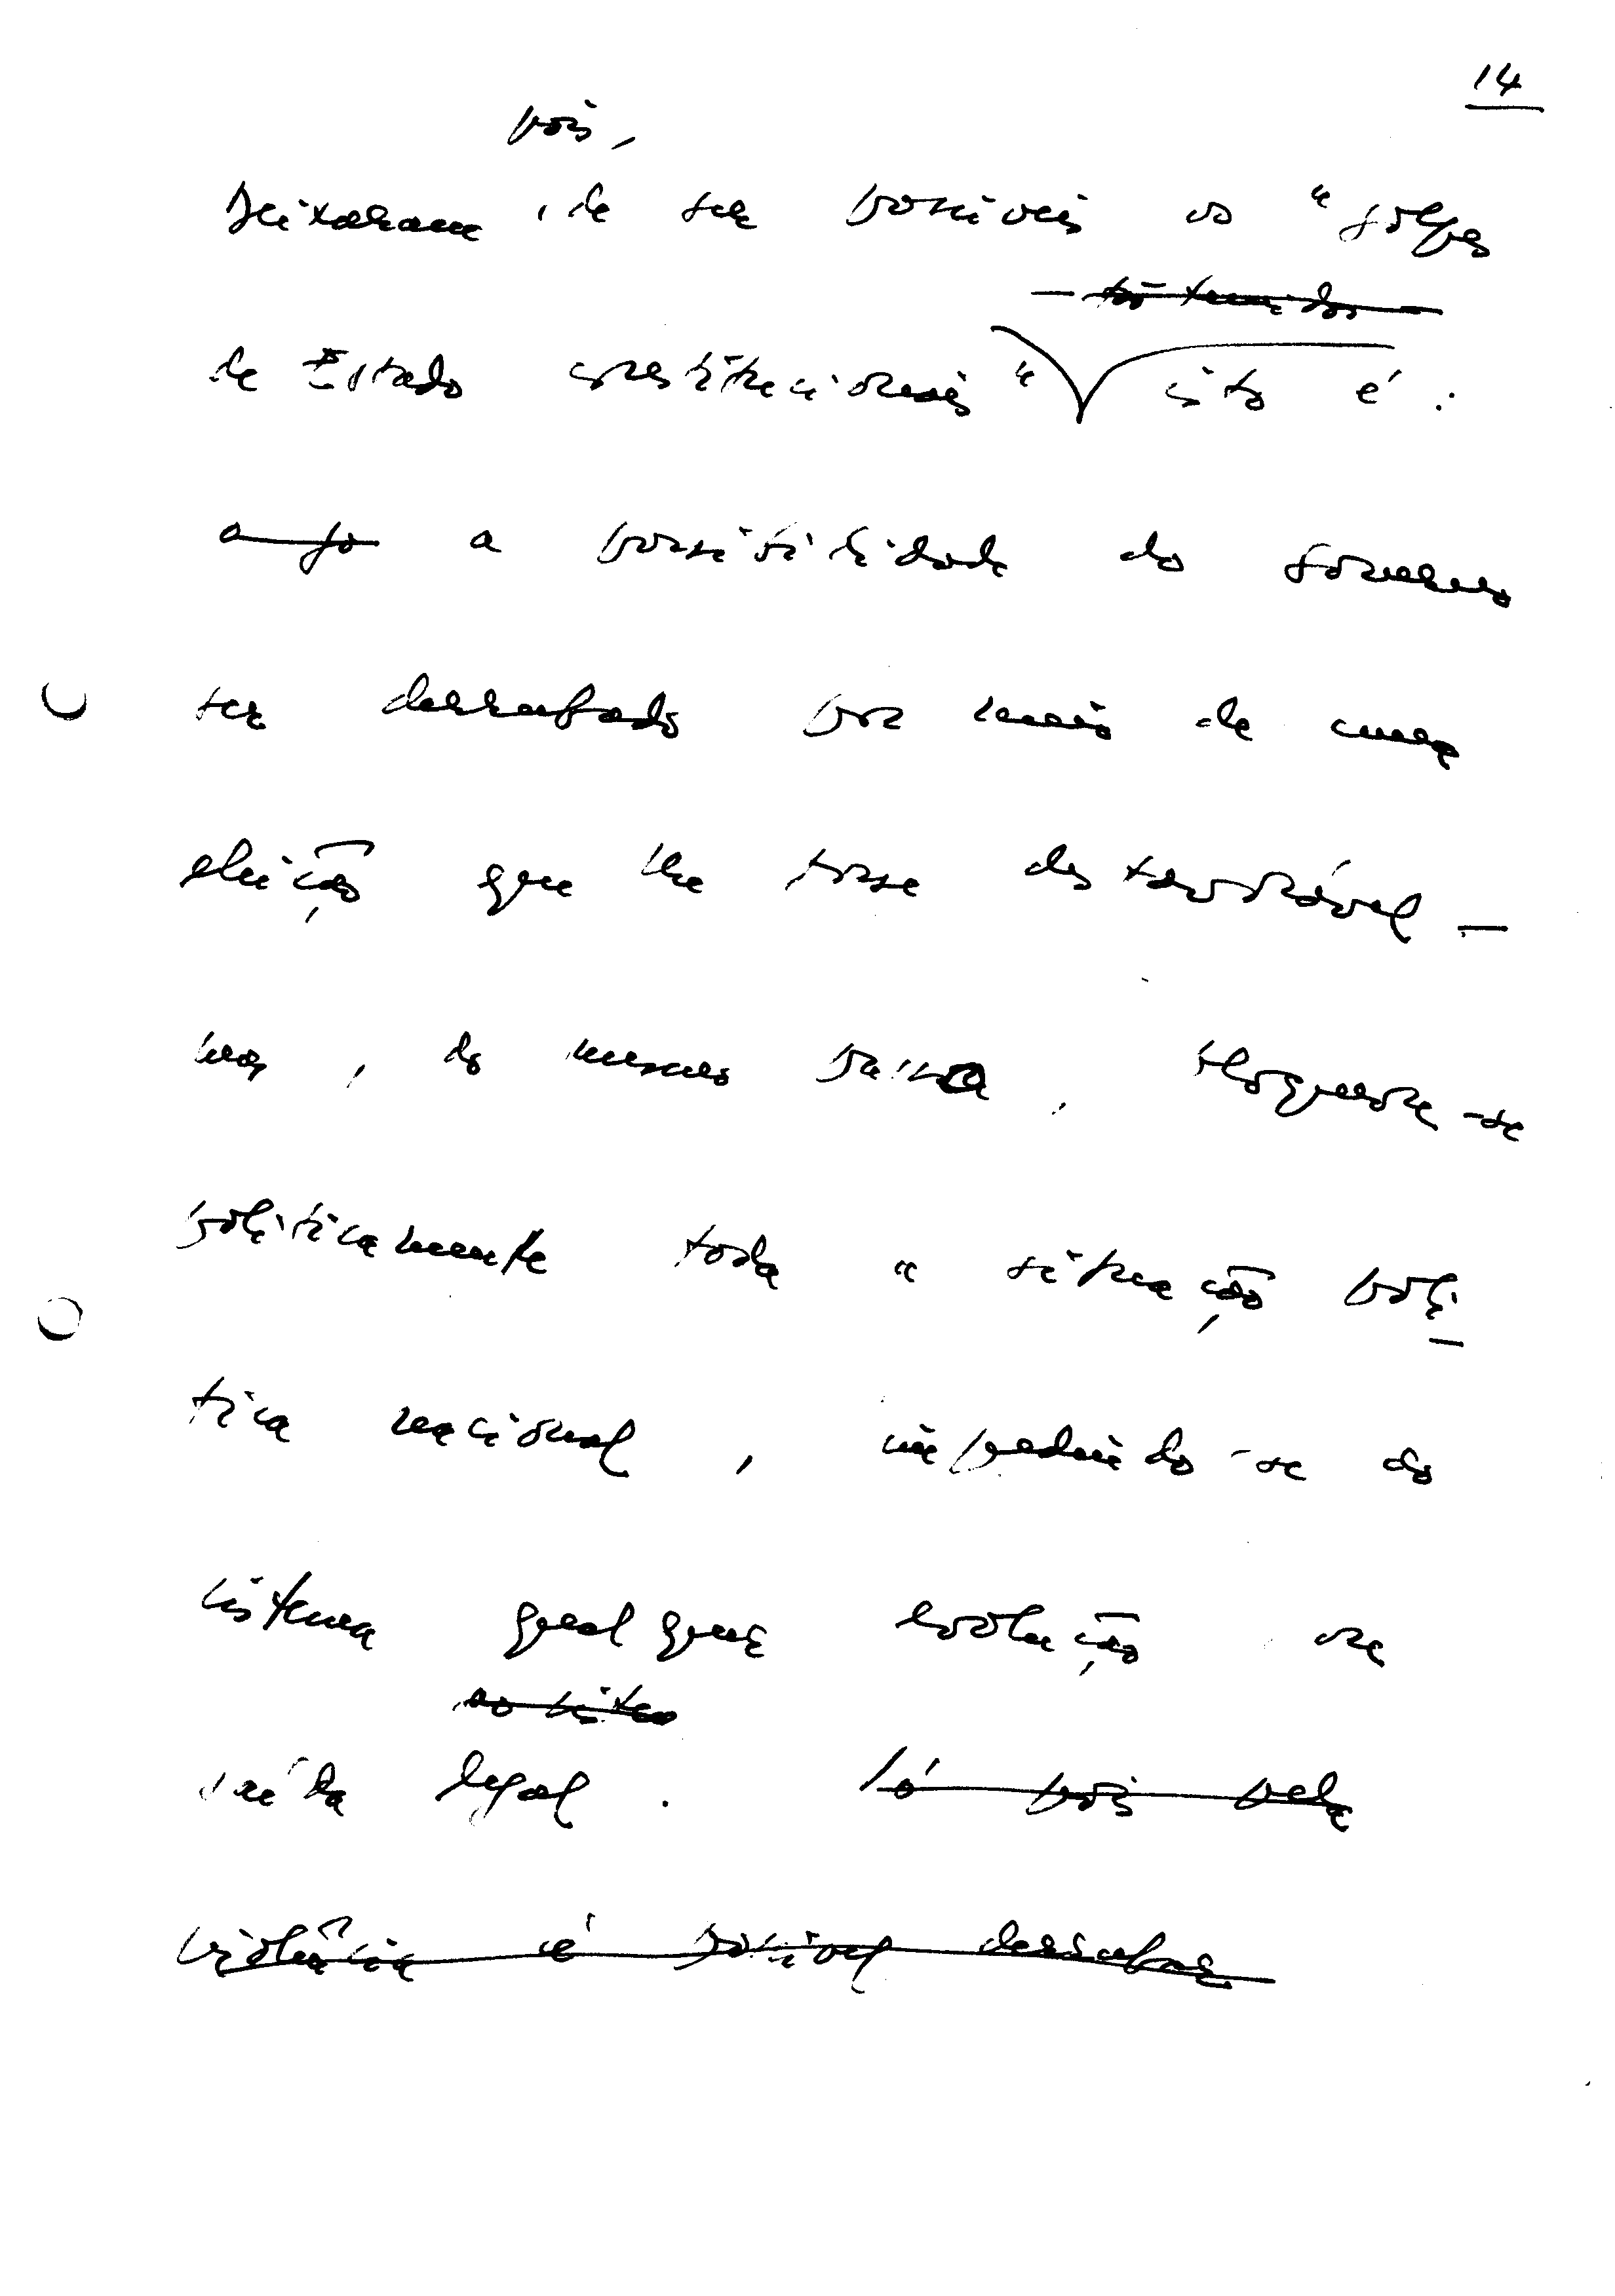 14
pois,
Deixaram, de ser possíveis os "golpes
- tão temidos -
de Estado constitucionais" isto é:
a go a possibilidade do governo
ser derrubado por meio de uma
eleição que lhe fosse desfavorável —
mas, do mesmo passo, bloqueou-se
politicamente toda a situação polí-
tica nacional, impedindo-se ao
sistema qualquer evolução na
ao sistem
vida legal. Só pois pela
violência é possível derrubar